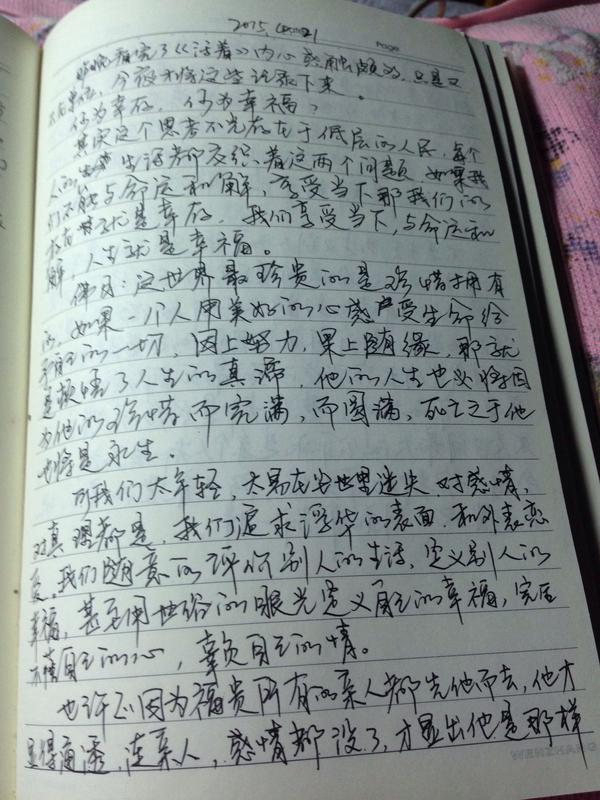 2015.
Page
昨晚看完了《活着》内心感触颇为,只是又
不在单位,今夜才将这些记录下来。
何为幸存,何为幸福?
其实这个思考不光存在于低层的人民,每个
人的生活都交织着这两个问题,如果我
们不能与命运和解,享受当下那我们的
就是幸存,我们享受当下,与命运和
解,人生就是幸福。
佛曰:这世界最珍贵的是珍惜拥有
的,如果一个人用美好的心感受生命给
予自己的一切,因上努力,果上随缘,那就
是换悟了人生的真谛,他的人生也必将因
为他的珍惜而完满,而圆满,死亡之于他
也将是永生。
可我们太年轻,太易在尘世里迷失,对感情,
对真理都是,我们追求浮华的表面,和外表恋
爱,我们随意的评价别人的生活,定义别人的
幸福,甚至用世俗的眼光定义自己的幸福,完全
不填自己的心,辜负自己的情。
也许正因为福贵所有的亲人都先他而去,他才
显得通透,连亲人,感情都没了,才显出他是那样